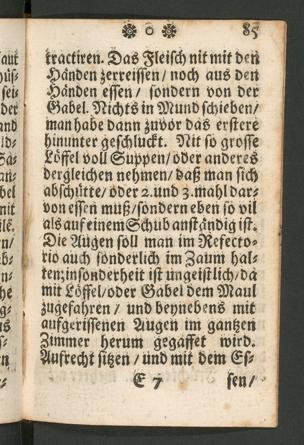 ❀ o ❀ 85
tractiren. Das Fleisch nit mit den
Händen zerreissen / noch aus den
Händen essen / sondern von der
Gabel. Nichts in Mund schieben /
man habe dann zuvor das erstere
hinunter geschluckt. Nit so grosse
Löffel voll Suppen / oder anderes
dergleichen nehmen / daß man sich
abschütte / oder 2. und 3. mahl dar-
von essen muß / sondern eben so vil
als auf einem Schub anständig ist.
Die Augen soll man im Refecto-
rio auch sonderlich im Zaum hal-
ten; insonderheit ist ungeistlich / da
mit Löffel / oder Gabel dem Maul
zugefahren / und beynebens mit
aufgerissenen Augen im gantzen
Zimmer herum gegaffet wird.
Aufrecht sitzen / und mit dem Es-
E 7 sen /